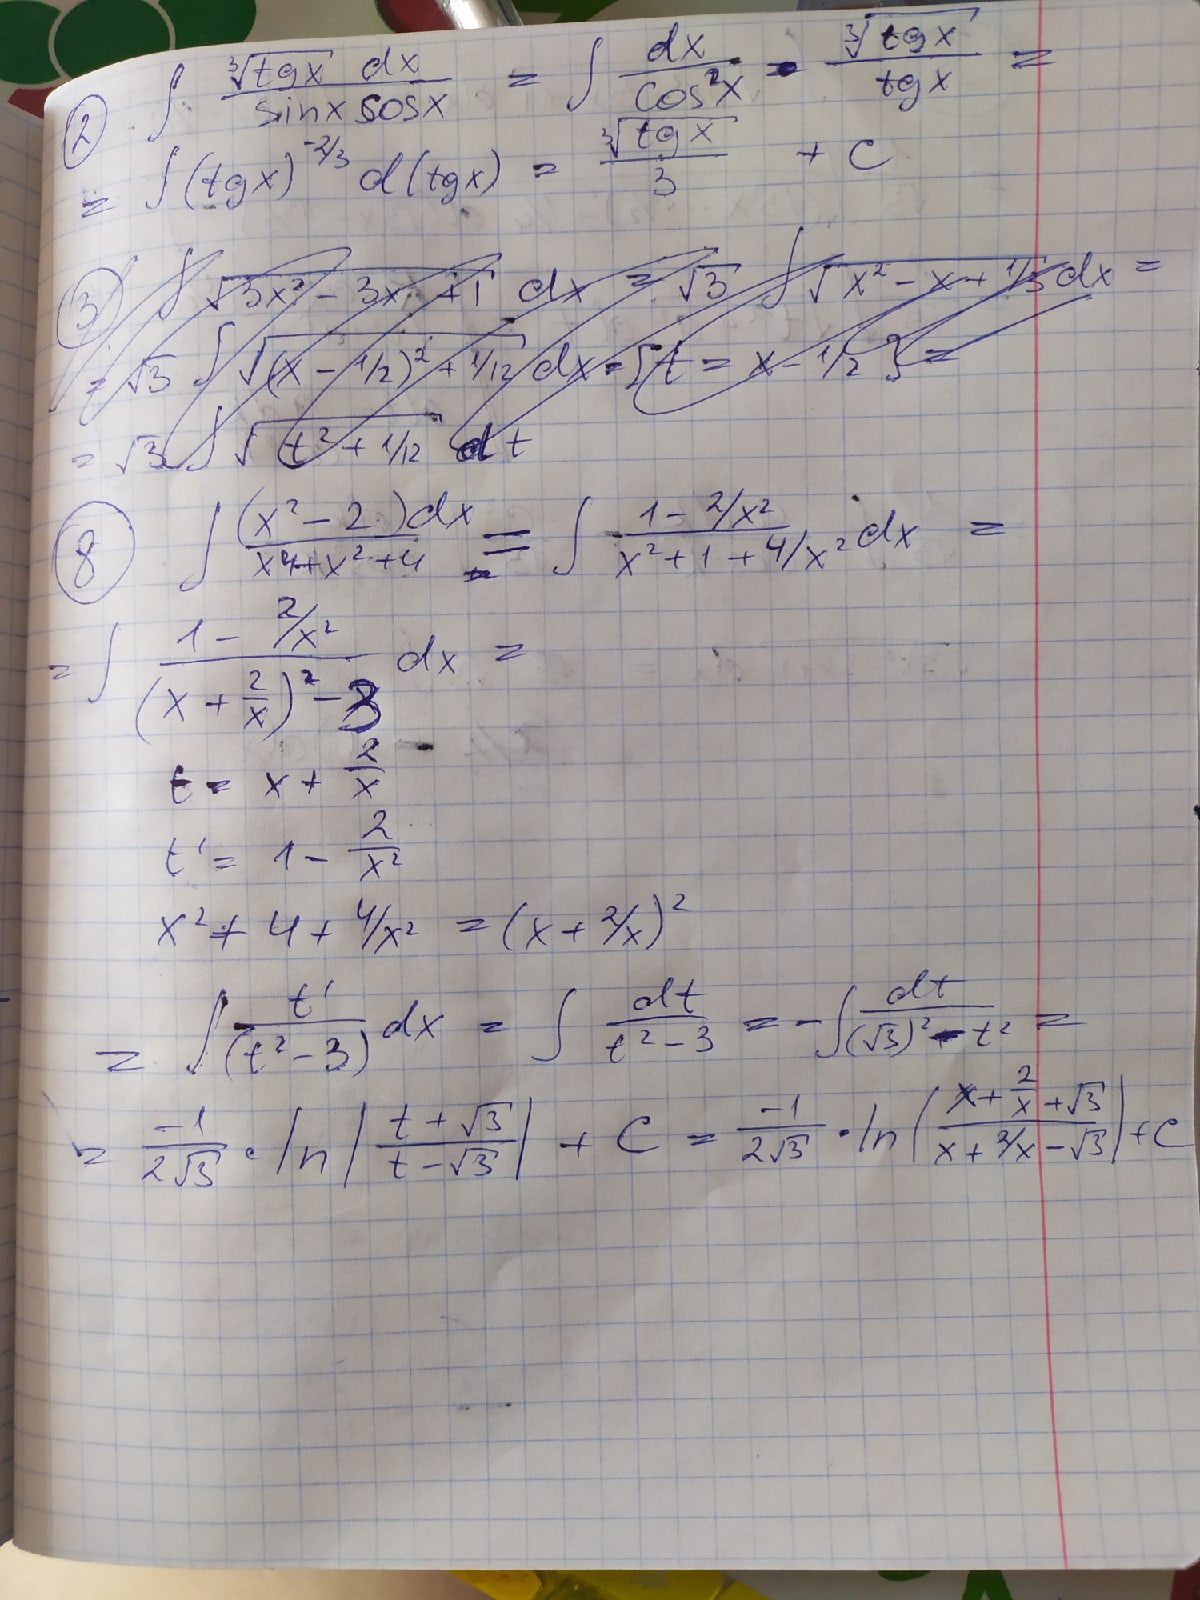 ② ∫ ∛tgx dx / sinx cosx = ∫ dx / cos²x · ∛tgx / tgx =
= ∫ (tgx)^(-2/3) d(tgx) = ∛tgx / 3 + C
③ ∫ √(3x² - 3x + 1) dx = √3 ∫ √(x² - x + 1/3) dx =
= √3 ∫ √((x - 1/2)² + 1/12) dx = {t = x - 1/2} =
= √3 ∫ √(t² + 1/12) dt
⑧ ∫ (x² - 2)dx / x⁴ + x² + 4 = ∫ 1 - 2/x² / x² + 1 + 4/x² dx =
= ∫ 1 - 2/x² / (x + 2/x)² - 3 dx =
t = x + 2/x
t' = 1 - 2/x²
x² + 4 + 4/x² = (x + 2/x)²
= ∫ t' / (t² - 3) dx = ∫ dt / t² - 3 = - ∫ dt / (√3)² - t² =
= -1 / 2√3 · ln | t + √3 / t - √3 | + C = -1 / 2√3 · ln | x + 2/x + √3 / x + 2/x - √3 | + C